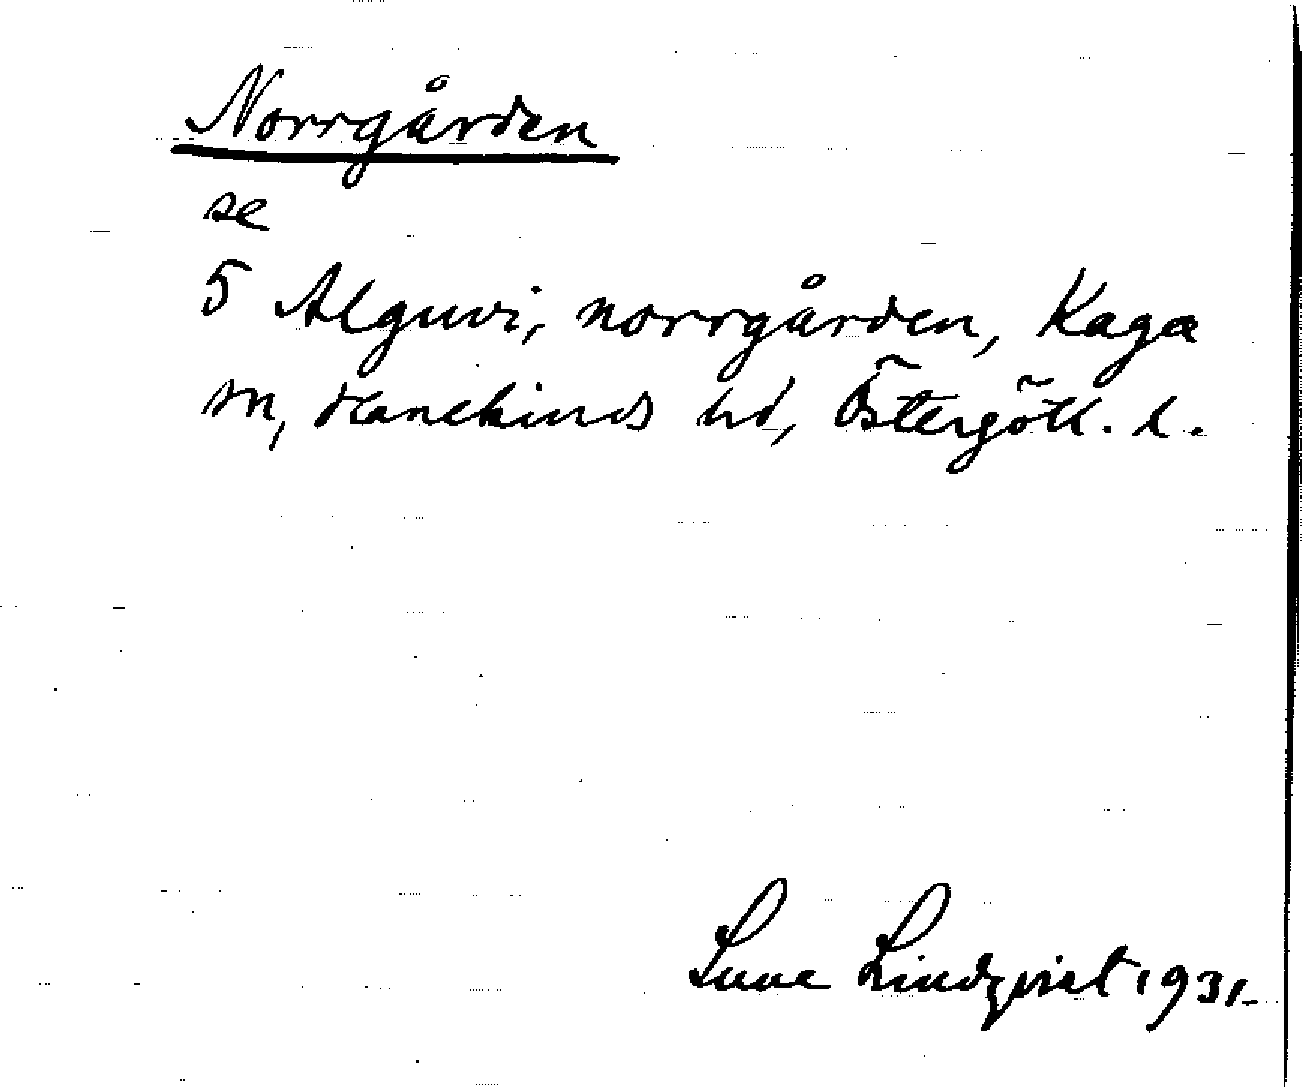 Norrgården
se
5 Alguvi, norrgården, Kaga
sn, Hanekinds hd, Östergötl. l.
Sune Lindqvist 1931.